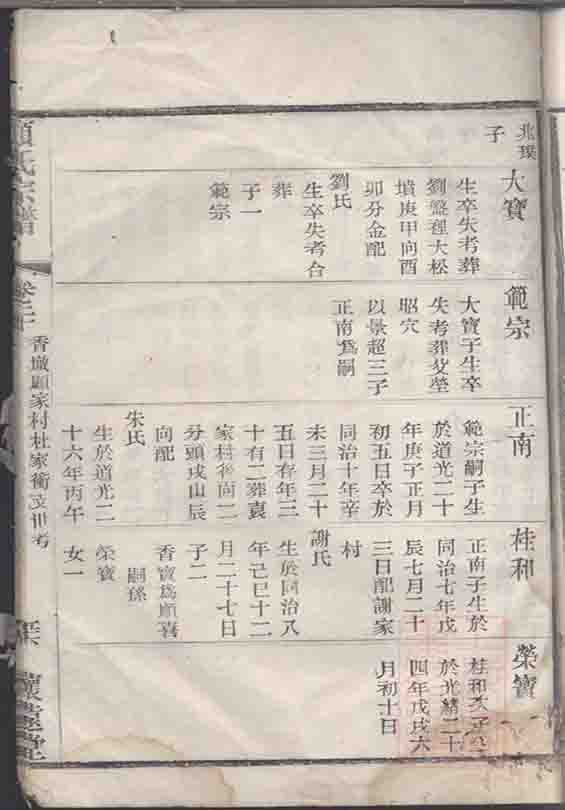 兆璞
子
大寶
生卒失考葬
劉盤程大松
墳庚甲向酉
卯分金配
劉氏
生卒失考合
葬
子一
範宗
範宗
大寶子生卒
失考葬父塋
昭穴
以景超三子
正南爲嗣
正南
範宗嗣子生
於道光二十
年庚子正月
初五日卒於
同治十年辛
未三月二十
五日存年三
十有二葬袁
家村後向二
分頭戌山辰
向配
朱氏
生於道光二
十六年丙午
桂和
正南子生於
同治七年戊
辰七月二十
三日配謝家
村
謝氏
生於同治八
年己巳十二
月二十七日
子二
香寶爲順喜
嗣孫
榮寶
女一
榮寶
桂和次子
於光緒二十
四年戊戌六
月初十日
顧氏宗譜
卷之二十
香城顧家村杜家衖支世考